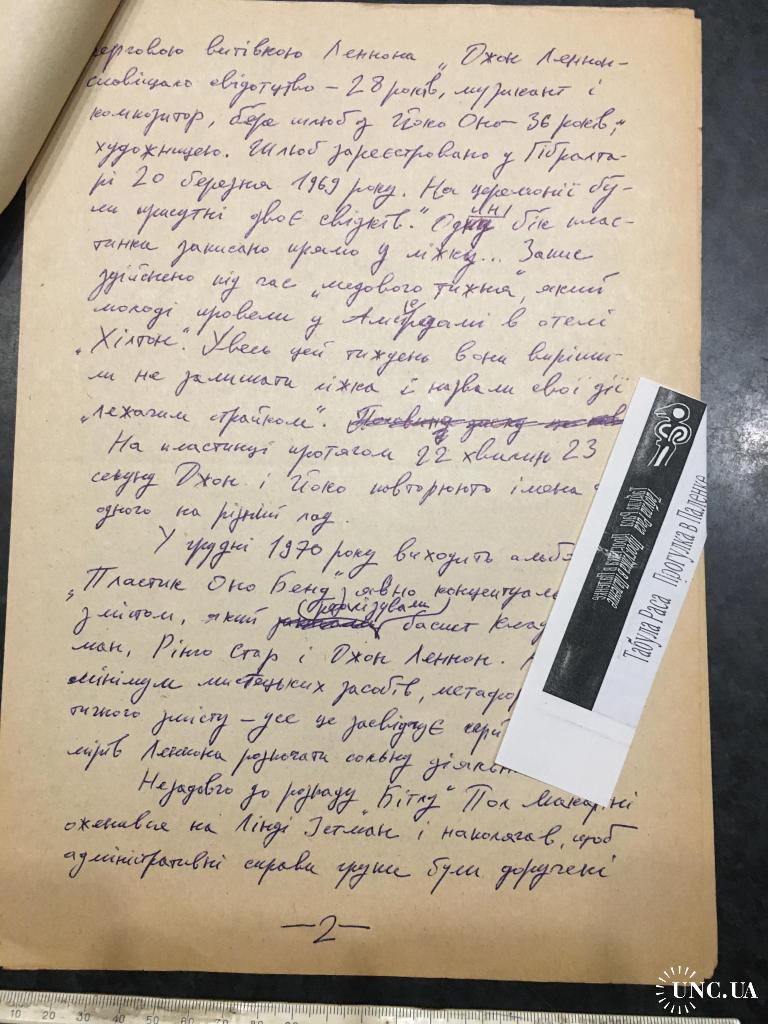 ерговою витівкою Леннона „Джон Леннон-
сповіщало свідотцтво – 28 років, музикант і
композитор, бере шлюб з Йоко Оно – 36 років,
художницею. Шлюб зареєстровано у Гібралта-
рі 20 березня 1969 року. На церемонії бу-
ли присутні двоє свідків." Один бік плас-
тинки записано прямо у ліжку... Запис
здійснено під час „медового тижня", який
молоді провели у Амстердамі в отелі
„Хілтон". Увесь цей тиждень вони виріши-
ли не залишати ліжка і назвали свої дії
„лежачим страйком". Половину диску
На пластинці протягом 22 хвилин 23
секунд Джон і Йоко повторюють імена
одного на різний лад.
У грудні 1970 року виходить альб
„Пластик Оно Бенд" явно концептуаль
змістом, який реалізували басист Клаус
ман, Рінго Стар і Джон Леннон.
мінімум мистецьких засобів, метафор
тичного змісту – усе це засвідчує сері
мірів Леннона розпочати сольну діяльн
Незадовго до розпаду „Бітлз" Пол Макартні
оженився на Лінді Істман і наполягав, щоб
адміністративні справи групи були доручені
—2—
Табула Раса Прогулка в Паленке
10 20 30 40 50 60 70 80
UNC.UA